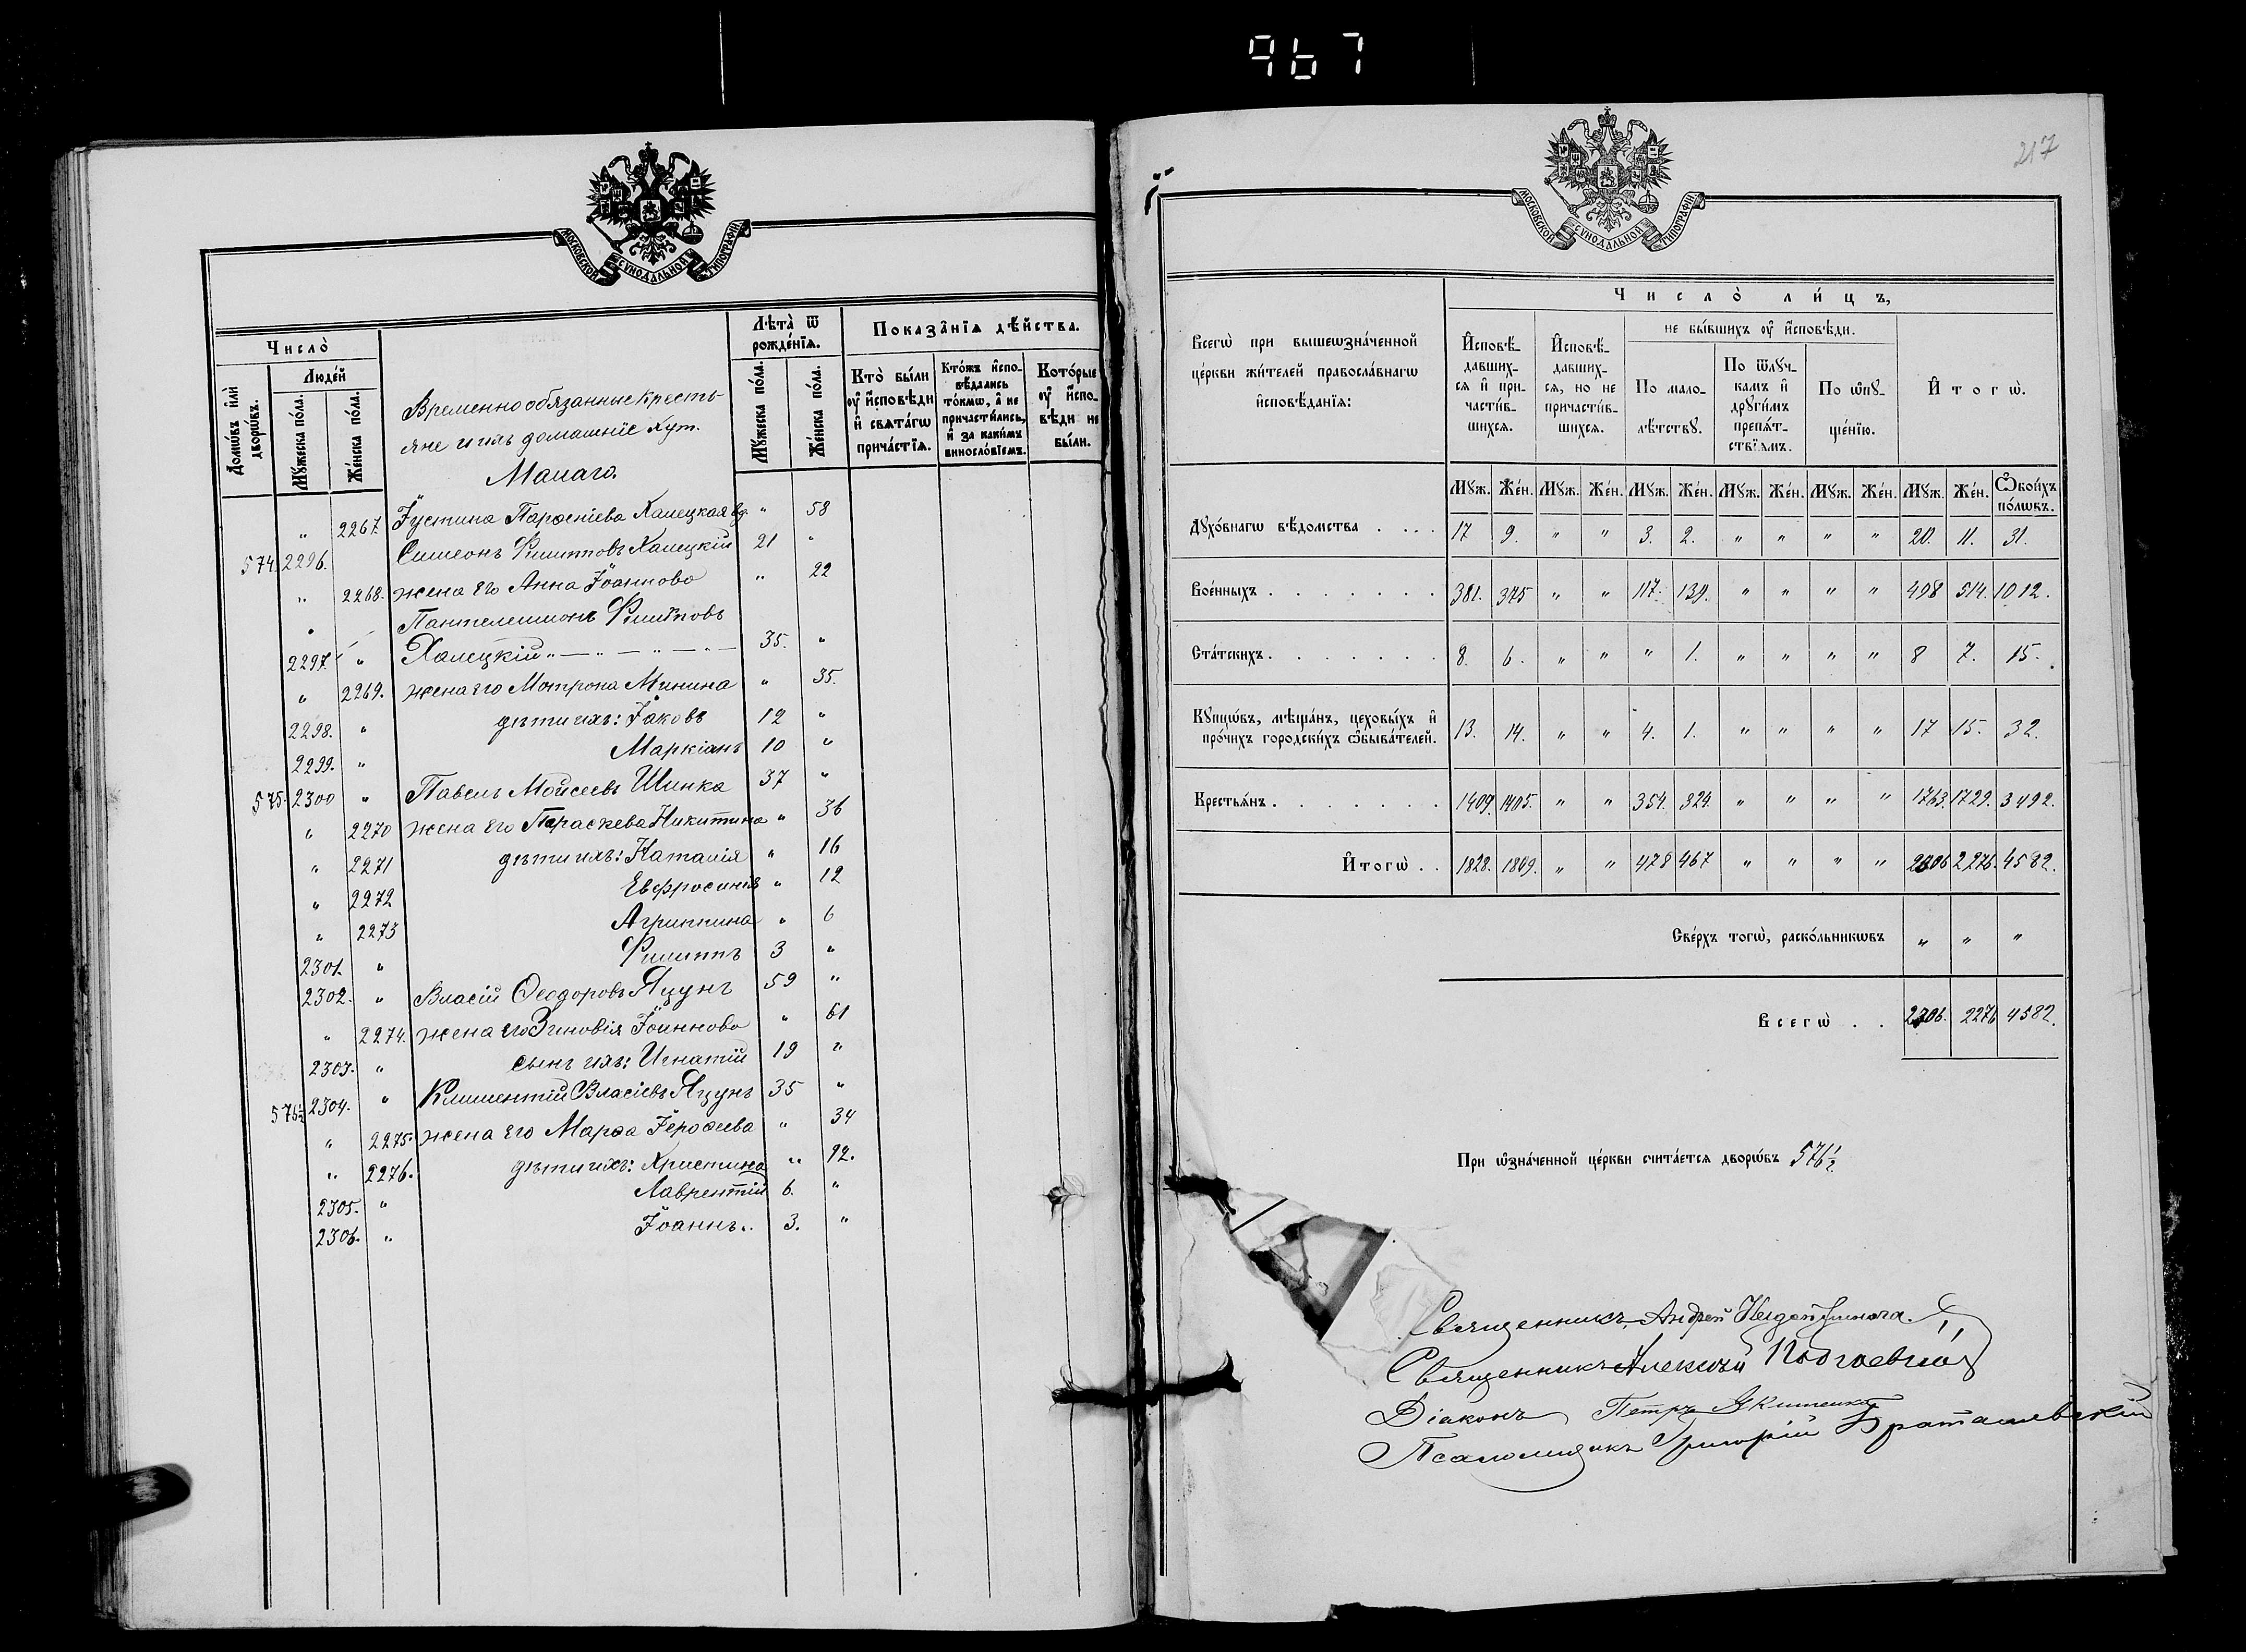 967
МОСКОВСКОЙ СѴНОДАЛЬНОЙ ТИПОГРАФІИ
Число̀
Домѡ́въ и҆лѝ дворѡ́въ.
Люде́й
Мꙋ́жеска по́ла.
Же́нска по́ла.
Временнообязанные кресть-
яне и ихъ домашніе Хут.
Малаго.
Лѣта̀ ѿ рожде́нїѧ.
Мꙋ́жеска по́ла.
Же́нска по́ла.
Показа̑нїѧ дѣ́йства.
Кто̀ бы́ли оу҆ и҆сповѣди и҆ свѧта́гѡ прича́стїѧ.
Кто́жъ и҆спо-вѣдались то́кмѡ, а҆ не причасти́лись, и҆ за каки́мъ винословїемъ.
Кото́рые оу҆ и҆спо-вѣди не бы́ли.
" 2267. Іустина Парѳеніева Халецкая вд. " 58
574. 2296. Симеонъ Филипповъ Халецкій 21 "
" 2268. жена его Анна Іоаннова " 22
Пантелеимонъ Филипповъ
2297. " Халецкій " — " — " — " — 35. "
" 2269. жена его Мотрона Минина " 35.
2298. " дѣти ихъ: Іаковъ 12 "
2299. " Маркіанъ 10 "
575. 2300 " Павелъ Моисеевъ Шинка 37 "
" 2270 жена его Параскева Никитина " 36
" 2271 дѣти ихъ: Наталія " 16
" 2272 Евфросинія " 12
" 2273 Агриппина " 6
2301. " Филиппъ 3 "
2302. " Власій Ѳеодоровъ Яцунъ 59 "
" 2274. жена его Зиновія Іоаннова " 61
2303. " сынъ ихъ: Игнатій 19 "
575½ 2304. " Климентій Власіевъ Яцунъ 35 "
" 2275. жена его Марѳа Іероѳеева " 34
" 2276. дѣти ихъ: Христина " 12.
2305. " Лаврентій 6. "
2306. " Іоаннъ.. 3. "
217
МОСКОВСКОЙ СѴНОДАЛЬНОЙ ТИПОГРАФІИ
Всегѡ̀ при вышеѡзна́ченной це́ркви жи́телей правосла́внагѡ и҆сповѣ́данїѧ:
Число̀ ли́цъ,
И҆сповѣ-давших-сѧ и҆ при-части́в-шихсѧ.
И҆сповѣ-давших-сѧ, но не причасти́в-шихсѧ.
не бы́вшихъ оу҆ и҆сповѣди.
По мало-лѣ́тствꙋ.
По ѿлꙋч-камъ и҆ дрꙋги́мъ препѧ́т-ствїѧмъ.
По ѡ҆пꙋ-ще́нїю.
И҆тогѡ̀.
Мꙋж. Же́н. Мꙋж. Же́н. Мꙋж. Же́н. Мꙋж. Же́н. Мꙋж. Же́н. Мꙋж. Же́н. Ѻ҆бои́хъ по́лѡвъ.
Дꙋхо́внагѡ вѣ́домства . . . . 17 9. " " 3. 2. " " " " 20. 11. 31.
Вое́нныхъ . . . . . . . 381. 375 " " 117. 139. " " " " 498 514. 1012.
Ста́тскихъ . . . . . . . 8. 6. " " " 1. " " " " 8 7. 15.
Кꙋпцѡ́въ, мѣща́нъ, цеховы́хъ и҆ про́чихъ городски́хъ ѡ҆быва́телей. 13. 14. " " 4. 1. " " " " 17 15. 32.
Крестьѧ́нъ . . . . . . . 1409. 1405. " " 354. 324. " " " " 1763. 1729. 3492.
И҆тогѡ̀ . . 1828. 1809. " " 478 467 " " " " 2306 2276. 4582.
Све́рхъ тогѡ̀, раско́льникѡвъ " " "
Всегѡ̀ . . 2306. 2276 4582.
При ѡ҆зна́ченной це́ркви счита́етсѧ дворѡ́въ 576½
Священникъ Андрей
Священникъ Алексій
Діаконъ Петръ Якименко
Псаломщикъ Григорій Браташевскій